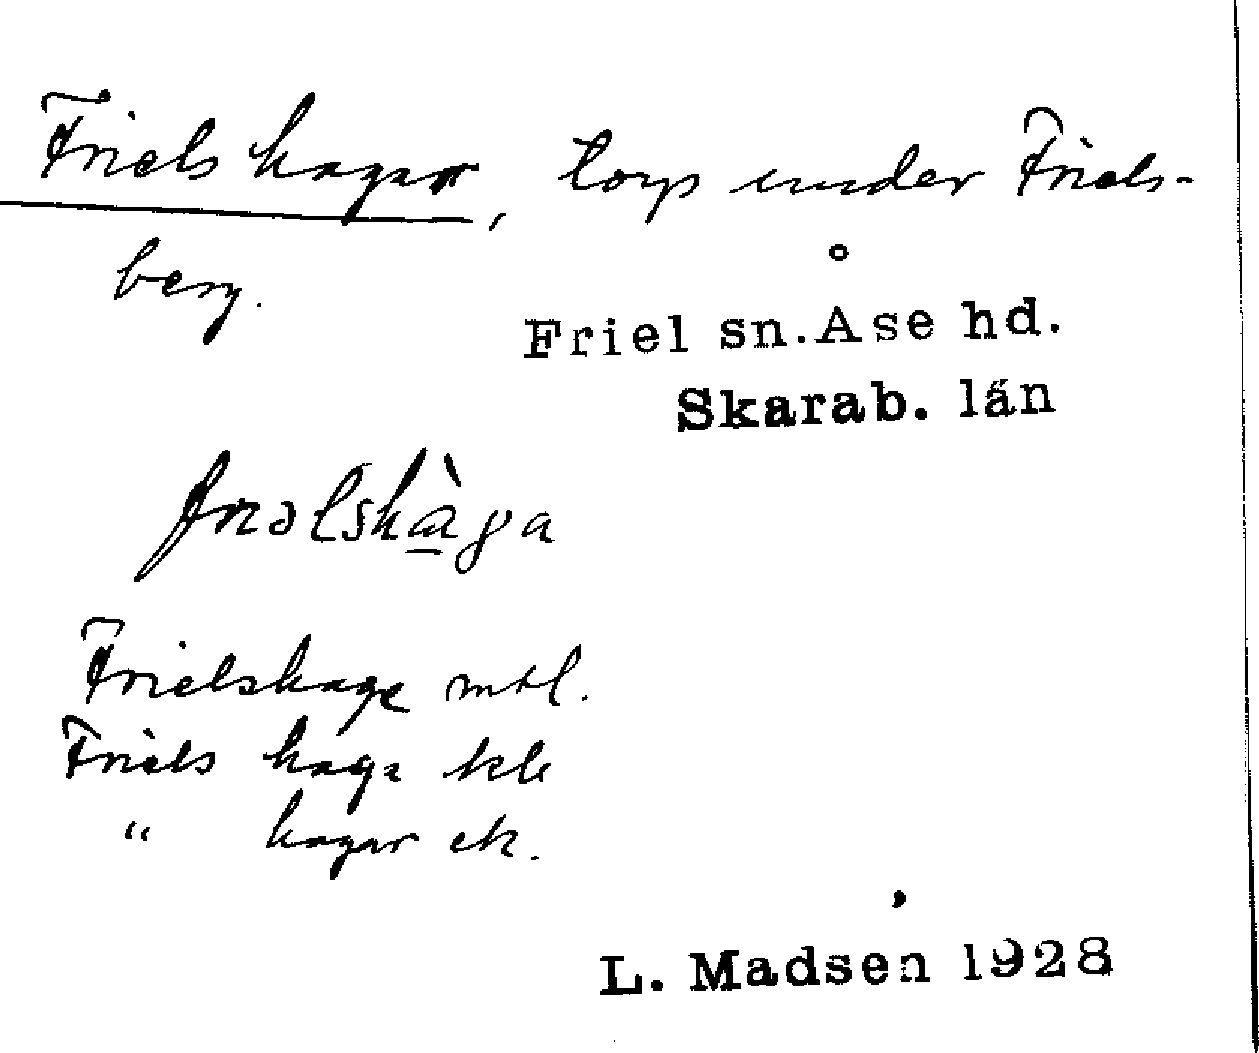 Friels hagar, torp under Friels-
berg.
Friel sn. Åse hd.
Skarab. län
Frielshage mtl.
Friels haga
" hagar ek.
L. Madsen 1928